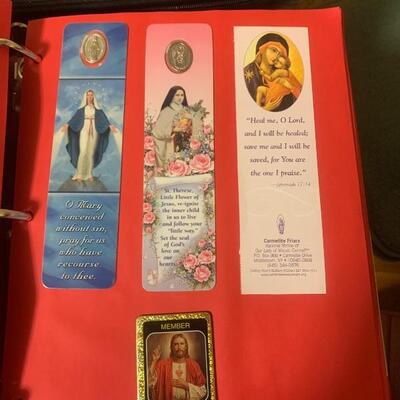 O Mary
conceived
without sin,
pray for us
who have
recourse
to thee.
St. Therese,
Little Flower of
Jesus, re-ignite
the inner child
in us to live
and follow your
"little way."
Set the seal
of God's
love on
our hearts.
"Heal me, O Lord,
and I will be healed;
save me and I will be
saved, for You are
the one I praise."
—Jeremiah 17:14
Carmelite Friars
National Shrine of
Our Lady of Mount Carmel
P.O. Box
Carmelite Drive
Middletown, NY
MEMBER